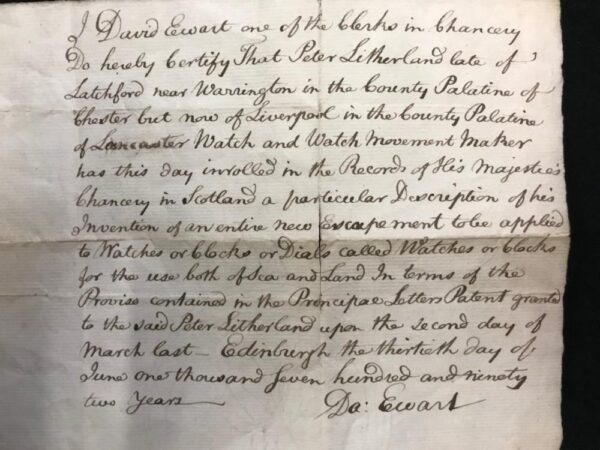 I David Ewart one of the Clerks in Chancery
Do hereby Certify That Peter Litherland late of
Latchford near Warrington in the County Palatine of
Chester but now of Liverpool in the County Palatine
of Lancaster Watch and Watch Movement Maker
has this day inrolled in the Records of His Majestie's
Chancery in Scotland a particular Description of his
Invention of an entire new Escapement to be applied
to Watches or Clocks or Dials called Watches or Clocks
for the use both of Sea and Land In terms of the
Proviso contained in the Principal Letters Patent granted
to the said Peter Litherland upon the second day of
March last – Edinburgh the thirtieth day of
June one thousand seven hundred and ninety
two Years — Da: Ewart